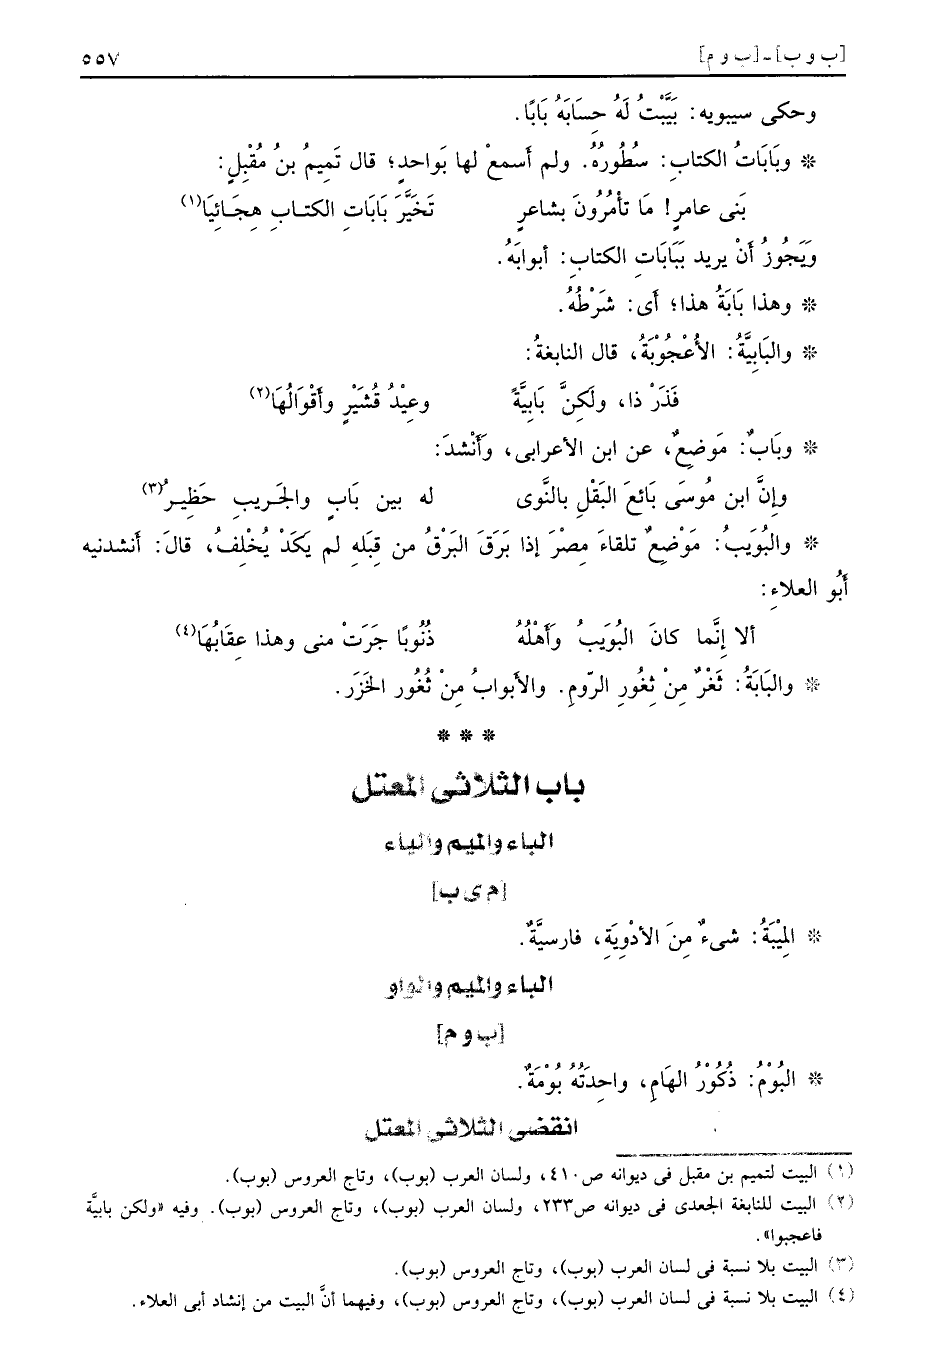 [ب و ب] - [ب و م] ٥٥٧
وحكى سيبويه: بَيَّبْتُ لَهُ حِسَابَهُ بَابًا.
* وبَابَاتُ الكتابِ: سُطُورُهُ. ولم أسمعْ لها بَواحدٍ؛ قال تَميمُ بنُ مُقْبِلٍ:
بَنى عامرٍ! مَا تأْمُرُونَ بشاعرٍ تَخَيَّرَ بَابَاتِ الكتابِ هِجَائِيَا(١)
وَيَجُوزُ أنْ يريد بَبَابَاتِ الكتابِ: أبوابَهُ.
* وهذا بَابَةُ هذا؛ أى: شَرْطُهُ.
* والبَابِيَّةُ: الأُعْجُوبَةُ، قال النابغةُ:
فَذَرْ ذا، ولَكِنَّ بَابِيَّةً وعِيْدُ قُشَيْرٍ وأَقْوَالُهَا(٢)
* وبَابٌ: مَوضعٌ، عن ابن الأعرابى، وَأَنْشدَ:
وإنَّ ابن مُوسَى بَائعَ البَقْلِ بالنَّوى له بين بَابٍ والجَريبِ حَظِيرُ(٣)
* والبُوَيبُ: مَوْضعٌ تلقاءَ مِصْرَ إذا بَرَقَ البَرْقُ من قِبَلهِ لم يَكَدْ يُخْلِفُ، قالَ: أنشدنيه
أبُو العلاءِ:
ألا إنَّما كانَ البُوَيبُ وَأَهْلُهُ ذُنُوبًا جَرَتْ منى وهذا عِقَابُهَا(٤)
* والبَابَةُ: ثَغْرٌ مِنْ ثِغُورِ الرّومِ. والأبوابُ مِنْ ثُغُور الخَزَر.
* * *
باب الثلاثى المعتل
الباء والميم والياء
[م ى ب]
* المِيْبَةُ: شىءٌ مِنَ الأدْوِيَةِ، فارسيَّةٌ.
الباء والميم والواو
[ب و م]
* البُوْمُ: ذُكُوْرُ الهَامِ، واحِدَتُهُ بُوْمَةٌ.
انقضى الثلاثى المعتل
(١) البيت لتميم بن مقبل فى ديوانه ص٤١٠، ولسان العرب (بوب)، وتاج العروس (بوب).
(٢) البيت للنابغة الجعدى فى ديوانه ص٢٣٣، ولسان العرب (بوب)، وتاج العروس (بوب). وفيه «ولكن بابيَّة
فاعجبوا».
(٣) البيت بلا نسبة فى لسان العرب (بوب)، وتاج العروس (بوب).
(٤) البيت بلا نسبة فى لسان العرب (بوب)، وتاج العروس (بوب)، وفيهما أنَّ البيت من إنشاد أبى العلاء.